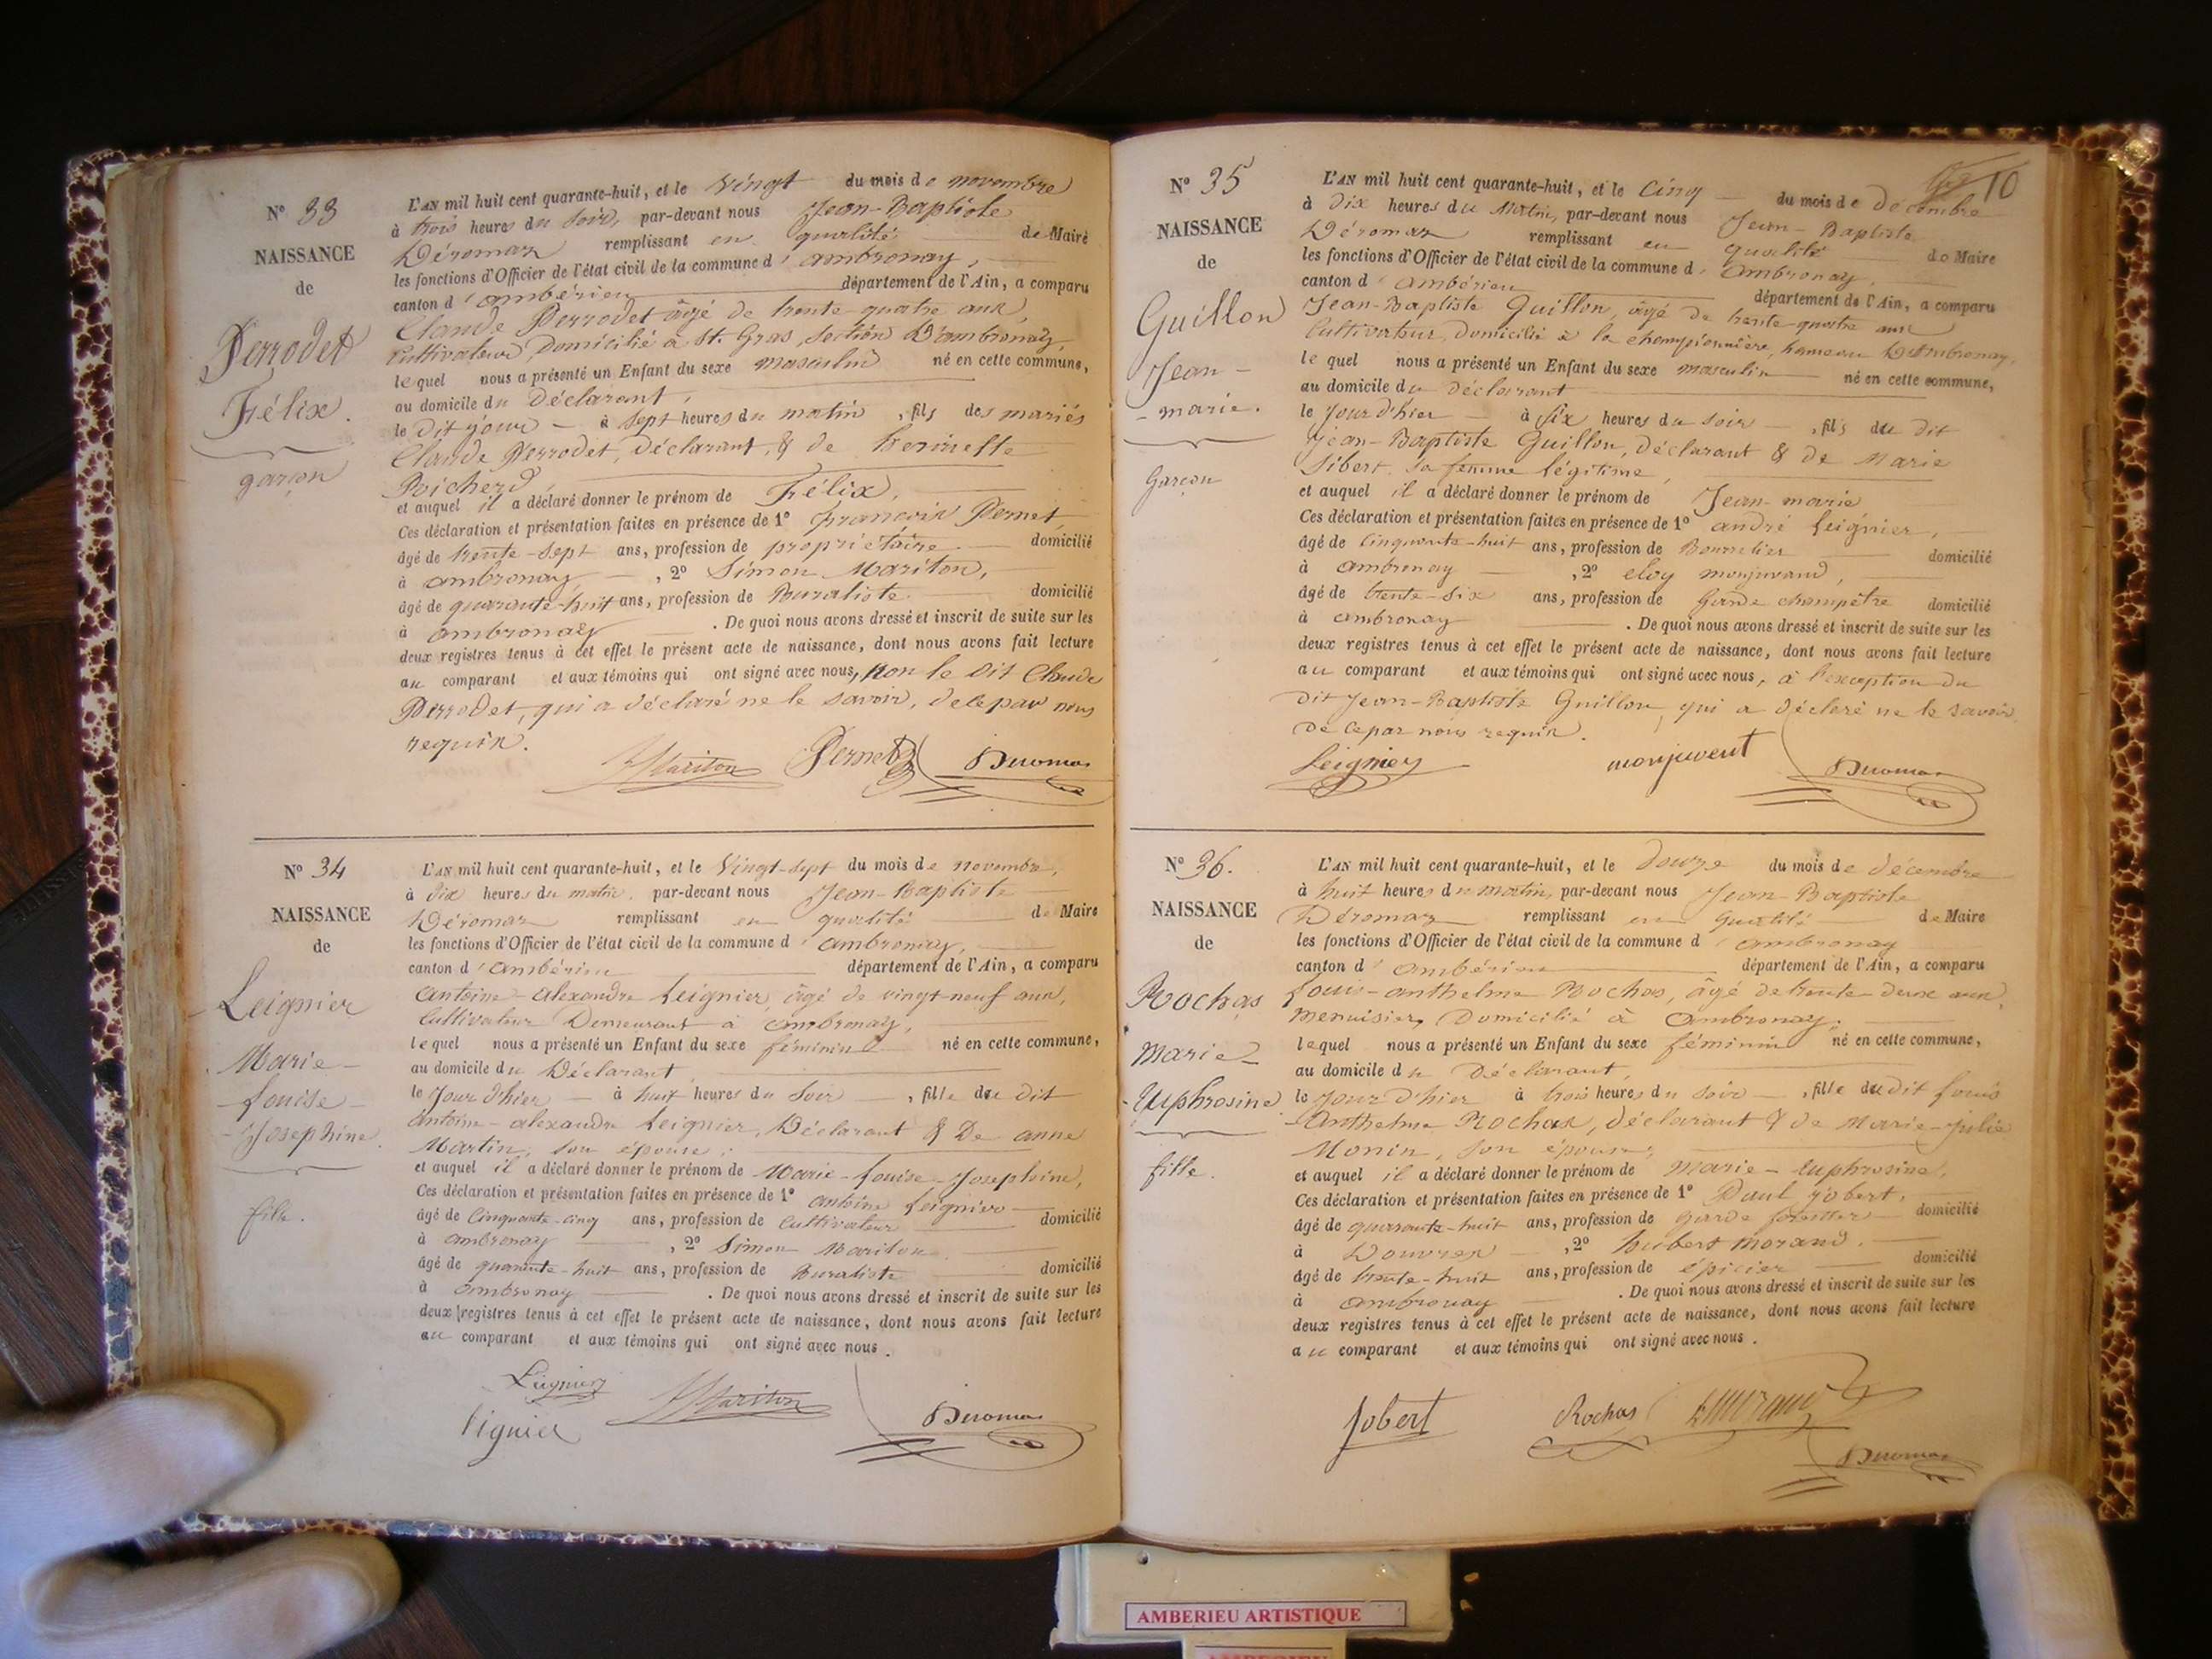 N° 33
NAISSANCE
de
Perrodet
Félix.
garçon
L'AN mil huit cent quarante-huit, et le vingt du mois de novembre
à trois heures du soir, par-devant nous Jean-Baptiste
Déromas remplissant en qualité de Maire
les fonctions d'Officier de l'état civil de la commune d'ambronay,
canton d'ambérieu département de l'Ain, a comparu
Claude Perrodet âgé de trente-quatre ans,
Cultivateur, domicilié à St. Gras, section d'ambronay,
lequel nous a présenté un Enfant du sexe masculin né en cette commune,
au domicile du Déclarant,
le dit jour à sept heures du matin, fils des mariés
Claude Perrodet, déclarant, & de
et auquel il a déclaré donner le prénom de Félix,
Ces déclaration et présentation faites en présence de 1° françois Pernet,
âgé de trente-sept ans, profession de propriétaire domicilié
à ambronay, 2° Simon Mariton,
âgé de quarante-huit ans, profession de Buraliste domicilié
à ambronay. De quoi nous avons dressé et inscrit de suite sur les
deux registres tenus à cet effet le présent acte de naissance, dont nous avons fait lecture
au comparant et aux témoins qui ont signé avec nous, non le dit Claude
Perrodet, qui a déclaré ne le savoir, de ce par nous
requis.
Mariton Pernet Deromas
N° 34
NAISSANCE
de
Leignier
Marie-
-Louise-
-Josephine.
fille.
L'AN mil huit cent quarante-huit, et le Vingt-sept du mois de novembre,
à dix heures du matin, par-devant nous Jean-Baptiste
Déromas remplissant en qualité de Maire
les fonctions d'Officier de l'état civil de la commune d'ambronay,
canton d'ambérieu département de l'Ain, a comparu
Antoine-alexandre Leignier, âgé de vingt-neuf ans,
Cultivateur Demeurant à ambronay,
lequel nous a présenté un Enfant du sexe féminin né en cette commune,
au domicile du Déclarant,
le Jour d'hier à huit heures du soir, fille du dit
antoine-alexandre Leignier, Déclarant & De anne
Martin, son épouse;
et auquel il a déclaré donner le prénom de Marie-Louise-Josephine,
Ces déclaration et présentation faites en présence de 1° antoine Leignier
âgé de Cinquante-cinq ans, profession de Cultivateur domicilié
à ambronay, 2° Simon Mariton
âgé de quarante-huit ans, profession de Buraliste domicilié
à ambronay. De quoi nous avons dressé et inscrit de suite sur les
deux registres tenus à cet effet le présent acte de naissance, dont nous avons fait lecture
au comparant et aux témoins qui ont signé avec nous.
Leignier Mariton Deromas
lignier
10
N° 35
NAISSANCE
de
Guillon
Jean-
-marie.
Garçon
L'AN mil huit cent quarante-huit, et le Cinq du mois de Décembre
à dix heures du Matin, par-devant nous Jean-Baptiste
Déromas remplissant en qualité de Maire
les fonctions d'Officier de l'état civil de la commune d'ambronay,
canton d'ambérieu département de l'Ain, a comparu
Jean-Baptiste Guillon, âgé de trente-quatre ans
Cultivateur, domicilié à la championnière, hameau D'Ambronay,
lequel nous a présenté un Enfant du sexe masculin né en cette commune,
au domicile du déclarant
le Jour d'hier à six heures du soir, fils du dit
Jean-Baptiste Guillon, déclarant & de Marie
Sibert, sa femme légitime,
et auquel il a déclaré donner le prénom de Jean-marie
Ces déclaration et présentation faites en présence de 1° andré Leignier,
âgé de cinquante-huit ans, profession de Bourrelier domicilié
à ambronay, 2° eloy monjuvand,
âgé de trente-six ans, profession de Garde champêtre domicilié
à ambronay. De quoi nous avons dressé et inscrit de suite sur les
deux registres tenus à cet effet le présent acte de naissance, dont nous avons fait lecture
au comparant et aux témoins qui ont signé avec nous, à l'exception du
dit Jean-Baptiste Guillon, qui a déclaré ne le savoir,
de ce par nous requis.
Leignier monjuvent Deromas
N° 36.
NAISSANCE
de
Rochas
Marie-
-Euphrosine
fille.
L'AN mil huit cent quarante-huit, et le douze du mois de décembre
à huit heures du matin, par-devant nous Jean-Baptiste
Déromas remplissant en qualité de Maire
les fonctions d'Officier de l'état civil de la commune d'ambronay
canton d'ambérieu département de l'Ain, a comparu
Louis-anthelme Rochas, âgé de trente deux ans,
menuisier, Domicilié à Ambronay,
lequel nous a présenté un Enfant du sexe féminin né en cette commune,
au domicile du Déclarant,
le Jour d'hier à trois heures du soir, fille du dit Louis
Anthelme Rochas, déclarant & de Marie-Julie
Monin, son épouse,
et auquel il a déclaré donner le prénom de Marie-Euphrosine,
Ces déclaration et présentation faites en présence de 1° Paul Jobert,
âgé de quarante-huit ans, profession de garde forestier domicilié
à Douvres, 2° hubert morand,
âgé de trente-huit ans, profession de épicier domicilié
à ambronay. De quoi nous avons dressé et inscrit de suite sur les
deux registres tenus à cet effet le présent acte de naissance, dont nous avons fait lecture
au comparant et aux témoins qui ont signé avec nous.
Jobert Rochas hmorand
Deromas
AMBERIEU ARTISTIQUE